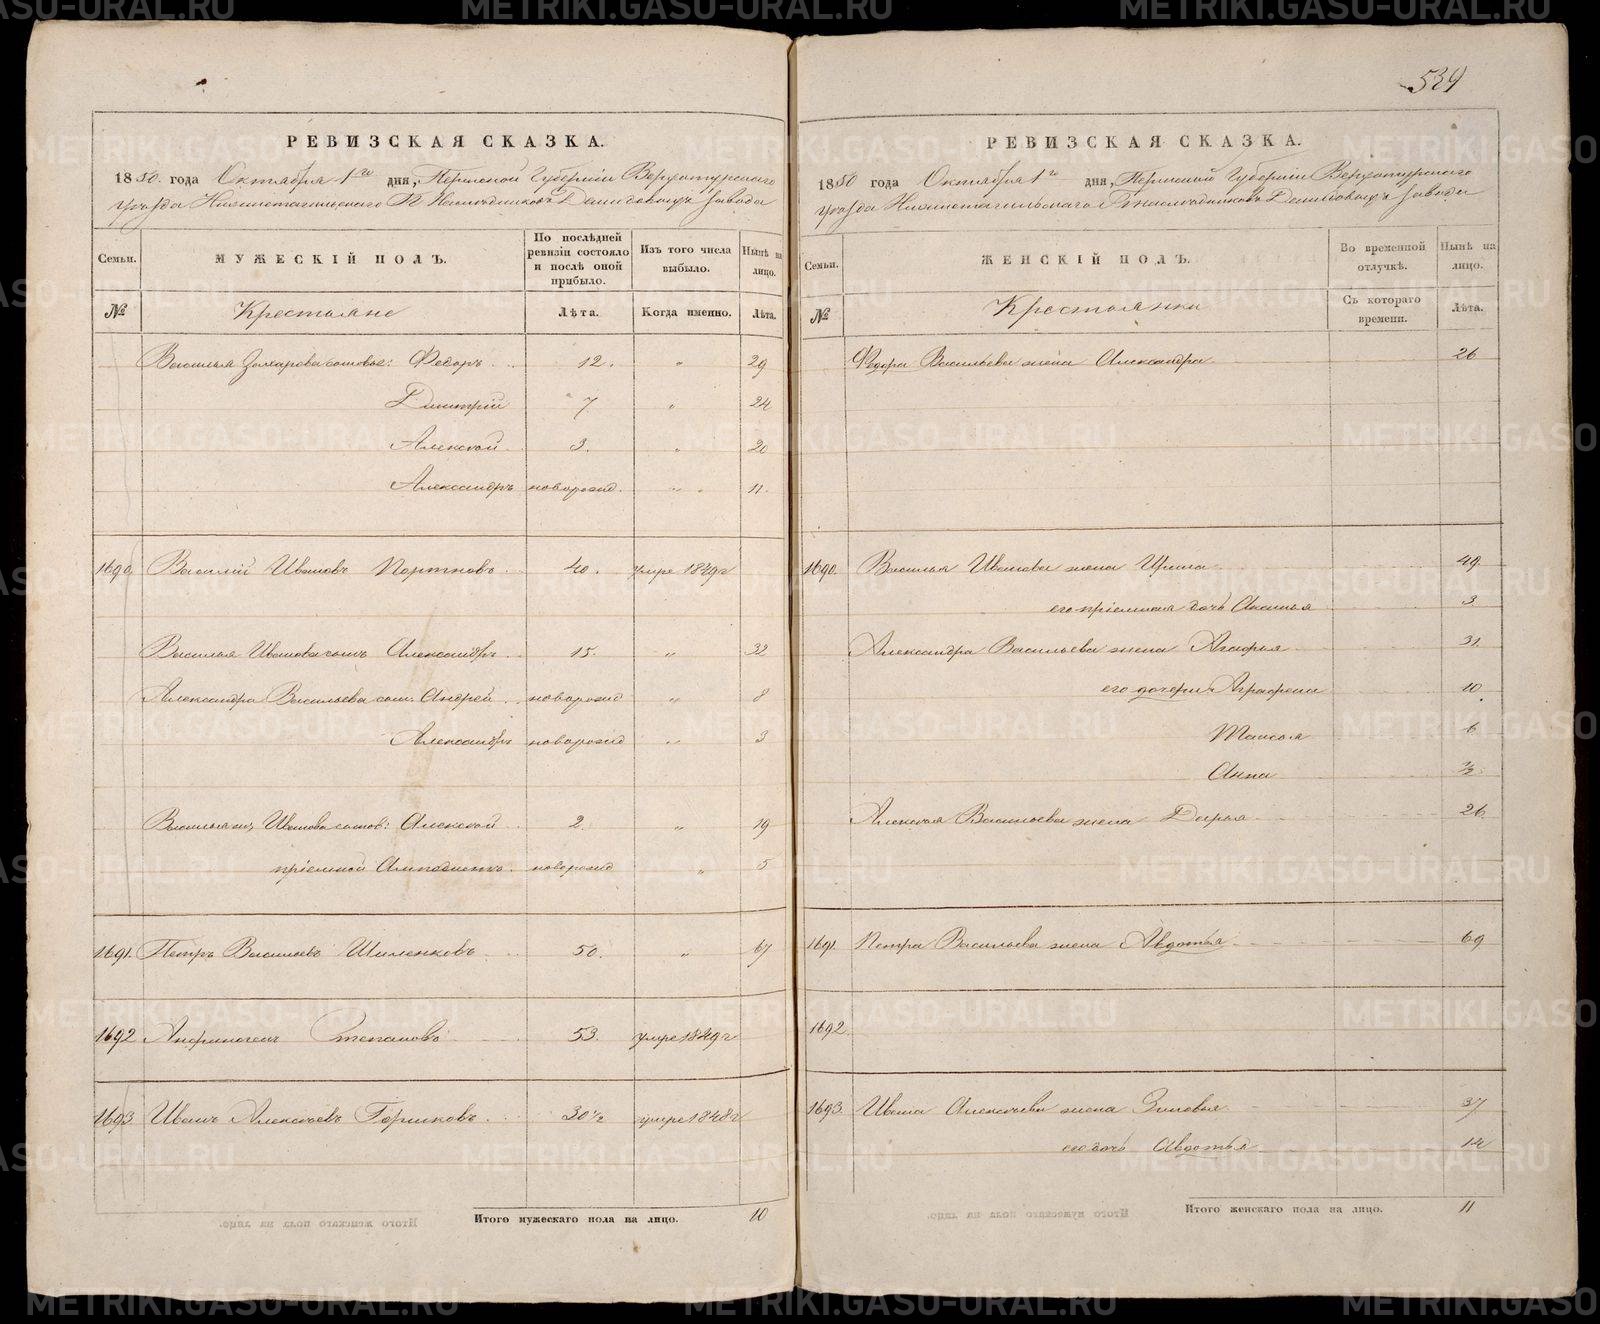 539
РЕВИЗСКАЯ СКАЗКА.
1850 года Октября 1го дня, Пермской Губерніи Верхотурскаго
уѣзда Нижнетагильскаго Г. Наслѣдниковъ Демидовыхъ завода
Семьи. МУЖЕСКІЙ ПОЛЪ. По послѣдней ревизіи состояло и послѣ оной прибыло. Изъ того числа выбыло. Нынѣ на лицо.
№ Крестьяне Лѣта. Когда именно. Лѣта.
Василья Захарова сыновья: Федоръ 12. " 29
Дмитрій 7 " 24
Алексѣй 3. " 20
Александръ новорожд. " 11.
1690. Василій Ивановъ Портновъ 40. умре 1849 г
Василья Иванова сынъ Александръ 15. " 32
Александра Васильева сын: Андрей новорожд " 8
Александръ новорожд " 3
Василья Иванова сынов: Алексѣй 2. " 19
пріемной новорожд " 5
1691. Петръ Васильевъ Шиленковъ 50. " 67
1692 Андрионъ Степановъ 53. умре 1849 г
1693 Иванъ Алексѣевъ Горшковъ 30 ½ умре 1848 г
Итого мужескаго пола на лицо. 10
РЕВИЗСКАЯ СКАЗКА.
1850 года Октября 1го дня, Пермской Губерніи Верхотурскаго
уѣзда Нижнетагильскаго Г. Наслѣдниковъ Демидовыхъ завода
Семьи. ЖЕНСКІЙ ПОЛЪ. Во временной отлучкѣ. Нынѣ на лицо.
№ Крестьянки Съ котораго времени. Лѣта.
Федора Васильева жена Александра 26
1690. Василья Иванова жена Ирина 49.
его пріемная дочь Анисья 3
Александра Васильева жена Агафья 31.
его дочери Аграфена 10
Таисья 6
Анна ½
Алексѣя Васильева жена Дарья 26.
1691. Петра Васильева жена Авдотья 69
1692.
1693. Ивана Алексѣева жена Зиновья 37
его дочь Авдотья 14
Итого женскаго пола на лицо. 11
METRIKI.GASO-URAL.RU